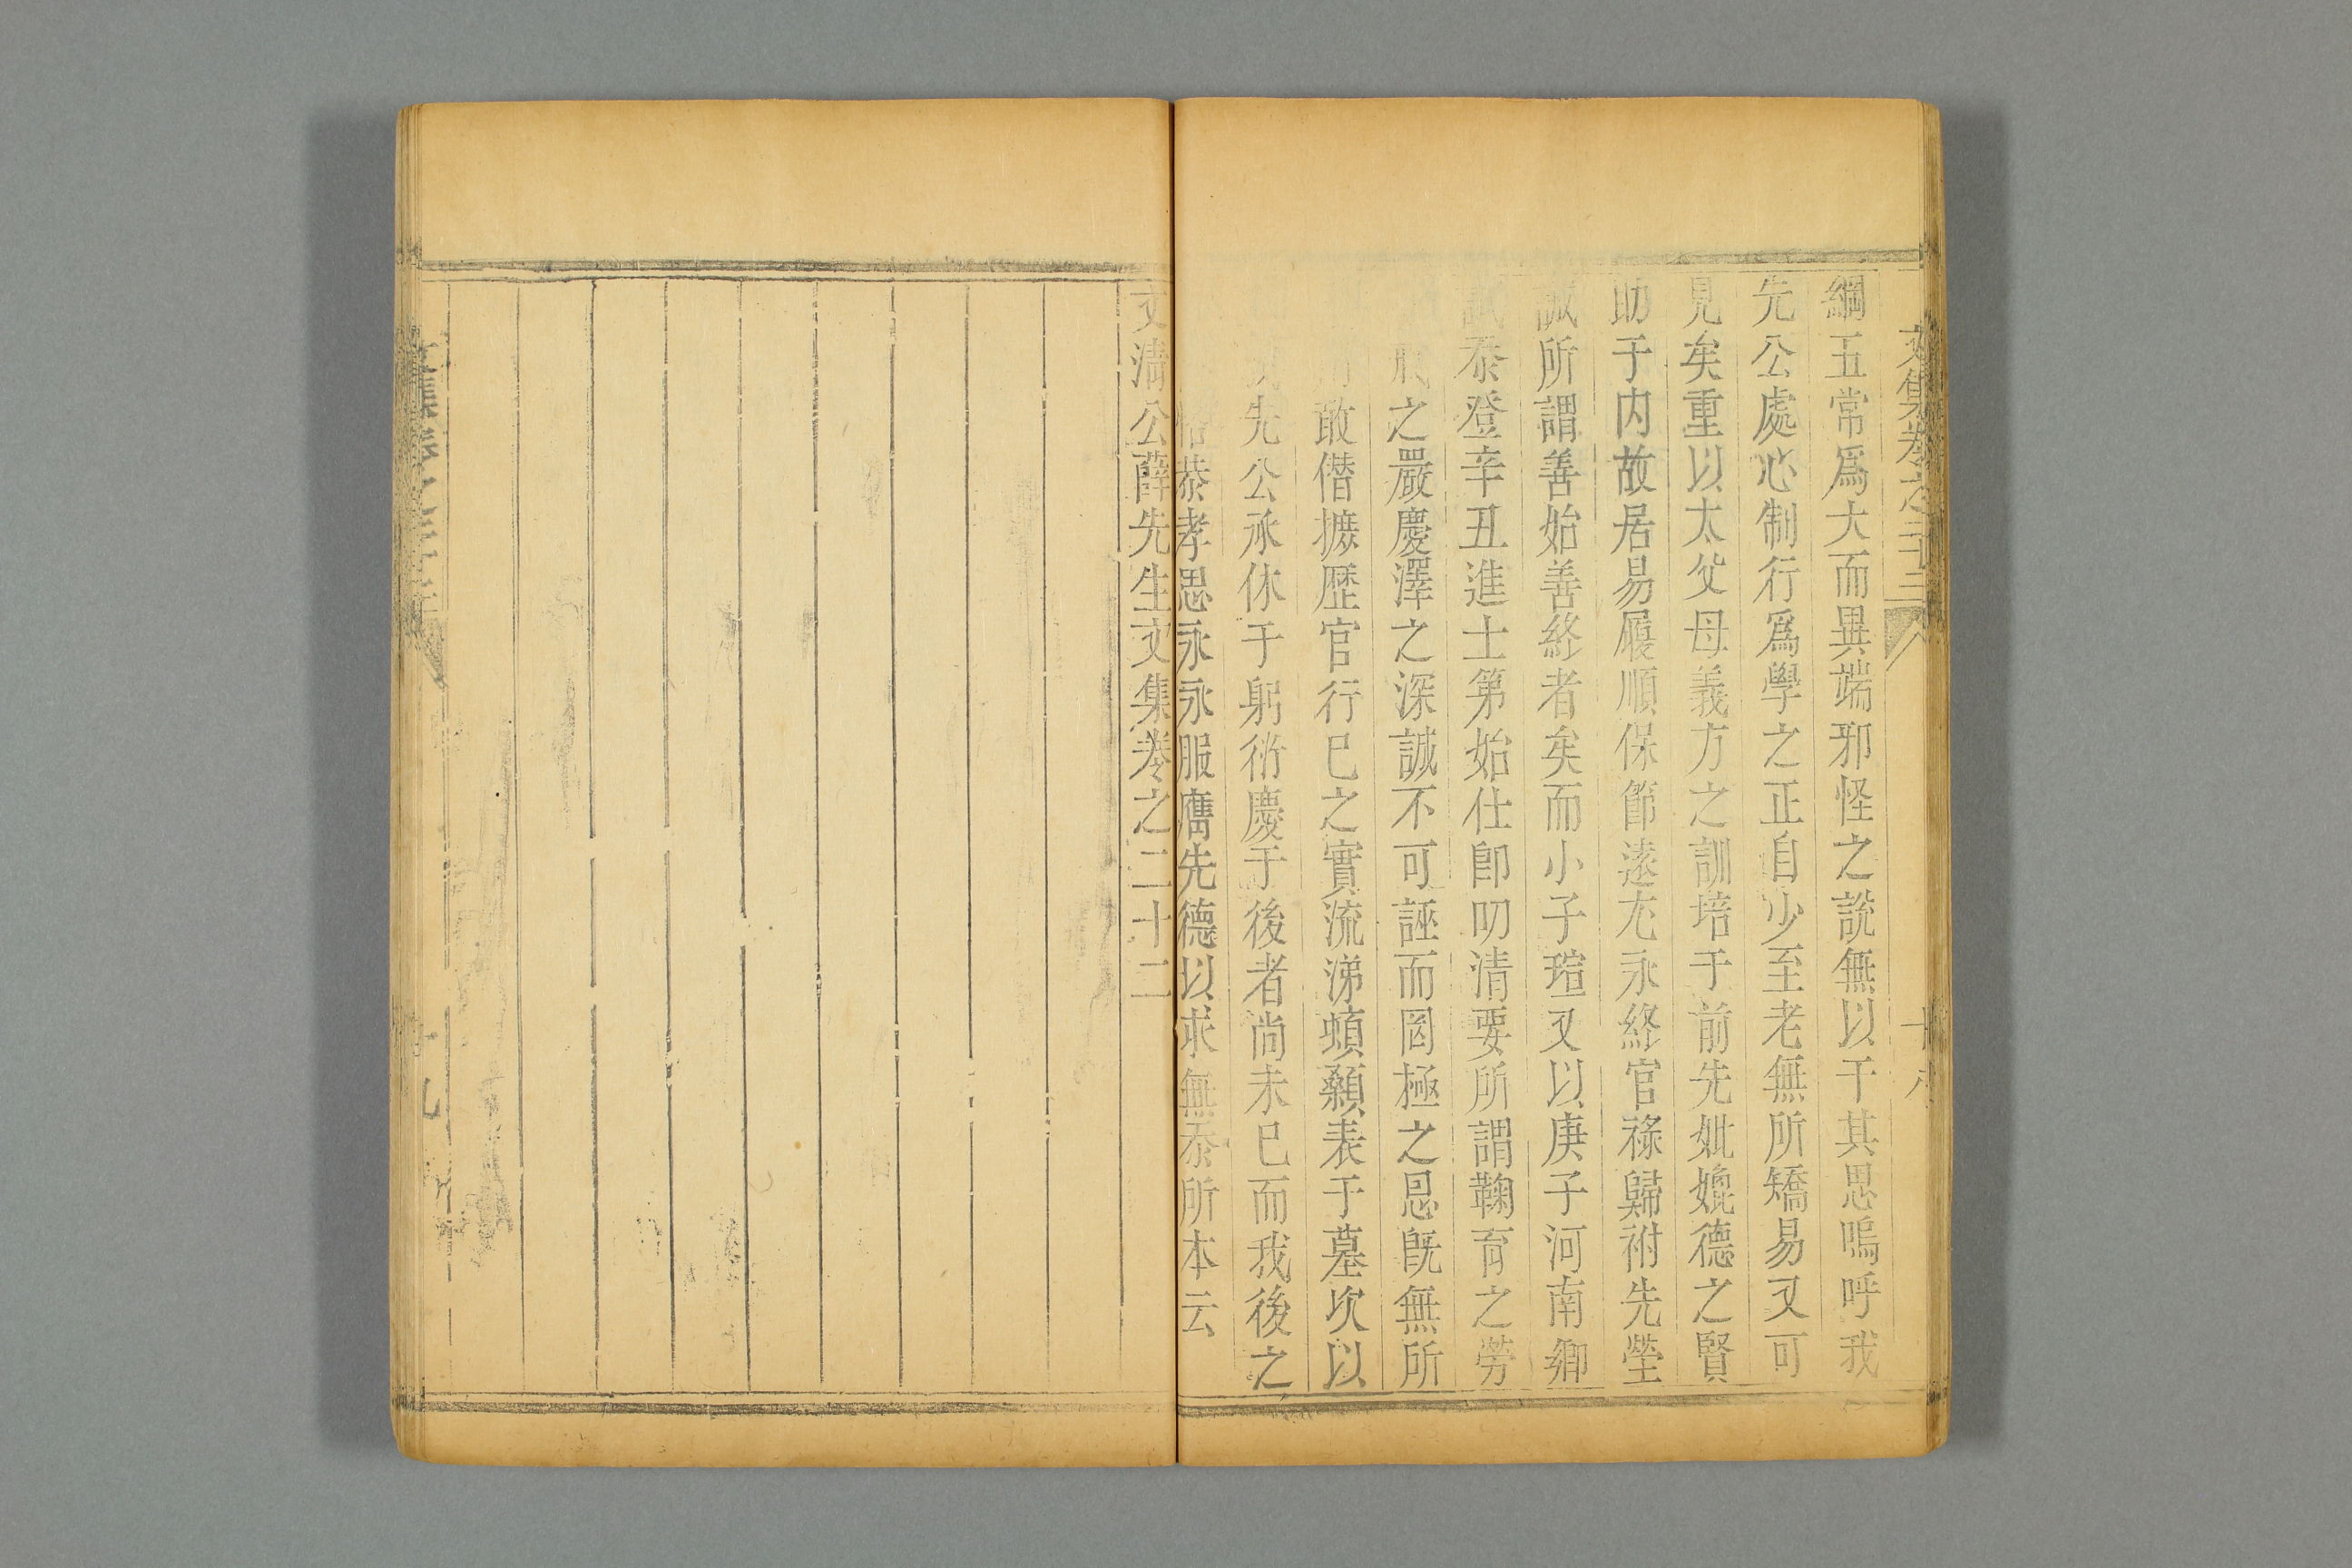 文集卷之二十二 十八
綱五常爲大而異端邪怪之說無以干其思嗚呼我
先公處心制行爲學之正自少至老無所矯易又可
見矣重以太父母義方之訓培于前先妣媲德之賢
助于内故居易履順保節遠尤永終官祿歸祔先塋
誠所謂善始善終者矣而小子瑄又以庚子河南鄉
試忝登辛丑進士第始仕卽叨清要所謂鞠育之勞
之嚴慶澤之深誠不可誣而罔極之恩旣無所
敢僣摭歷官行已之實流涕頓顙表于墓次以
先公承休于躬衍慶于後者尚未已而我後之
恭孝思永永服膺先德以求無忝所本云
文清公薛先生文集卷之二十二